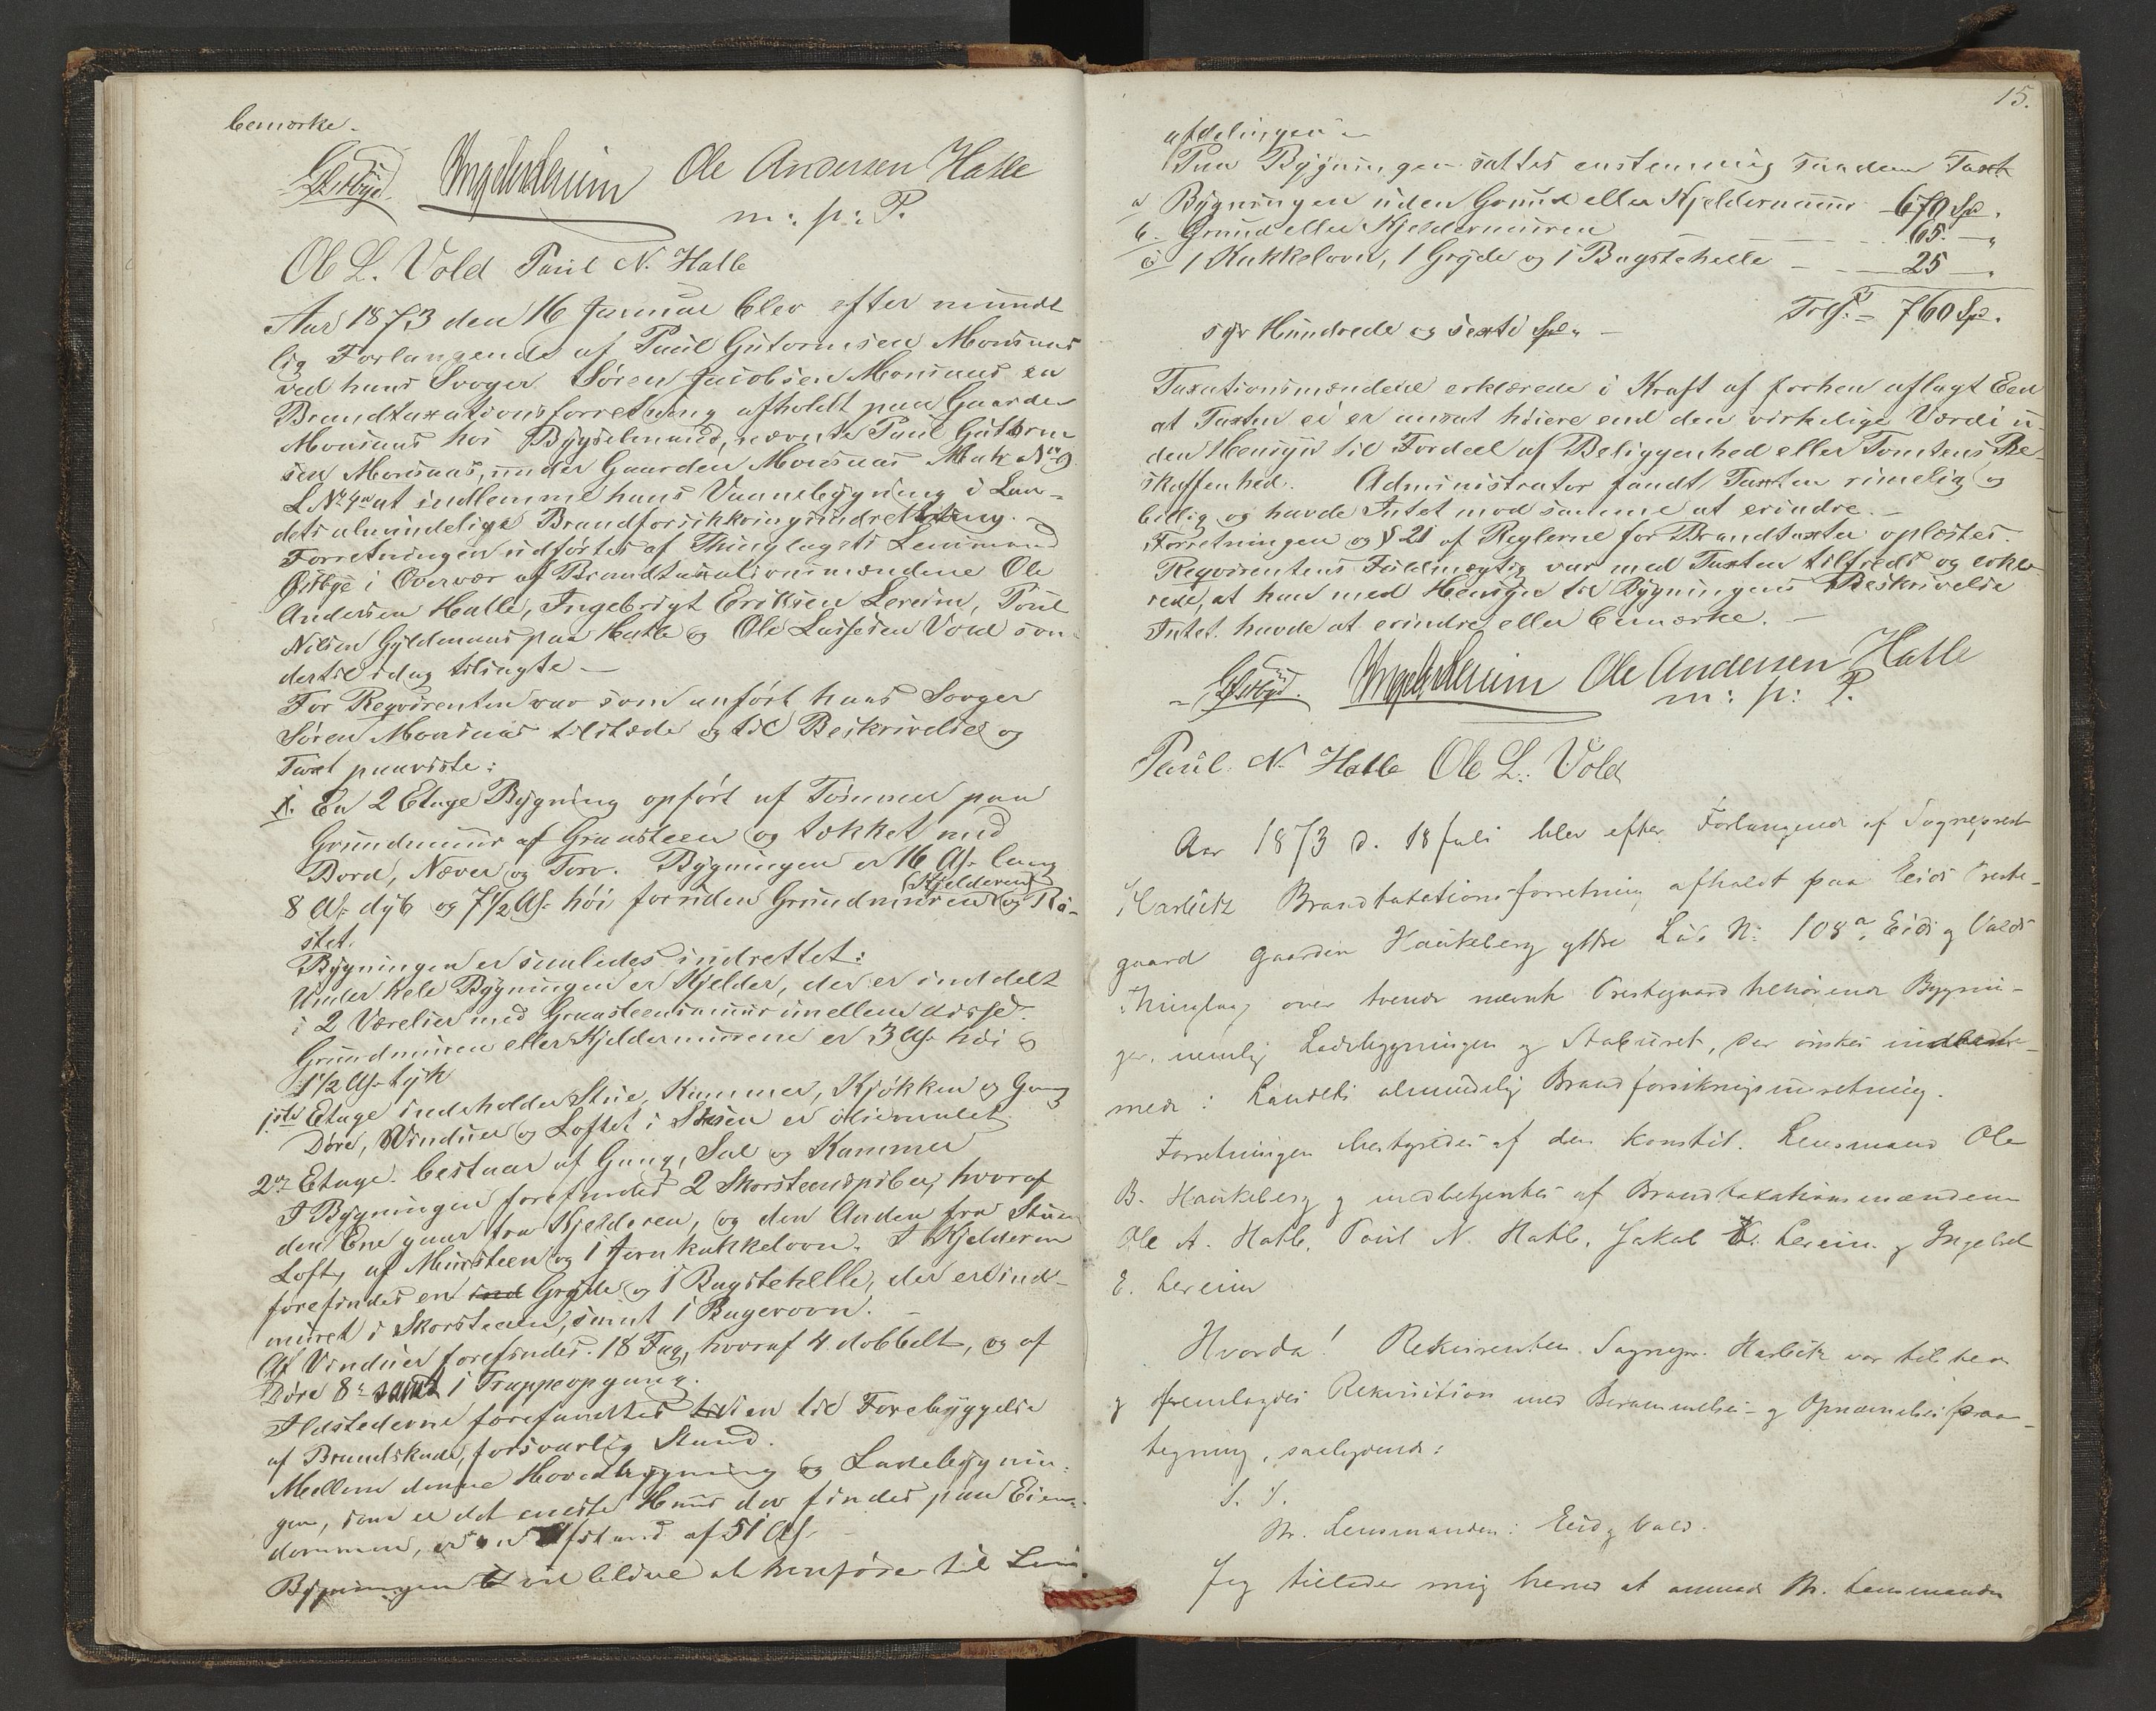 bemærke.
Ole Andersen Hatle
m: p: P.
Ole L. Vold Paul N. Hatle
Aar 1873 den 16 Januar blev efter mundt
lig Forlangende af Paul Gutormsen Monsaas
ved hans Svoger Søren Jacobsen Monsaas en
Brandtaxationsforretning afholdt paa Gaarden
Monsaas hos Bygselmand, nævnte Paul Guttorm
sen Monsaas, under Gaarden Monsaas Matr No 9
L No 4a at indlemme hans Vaanebygning i Lan-
dets almindelige Brandforsikkringsindretning. -
Forretningen udførtes af Thinglagets Lensmand
Østbye i Overvær af Brandtaxationsmændene Ole
Andersen Hatle, Ingebrigt Eriksen Lereim, Poul
Nilsen Gyldenaas paa Hatle og Ole Lassesen Vold som
dertil idag tilsagte -
For Reqvirenten var som anført hans Svoger
Søren Monsaas tilstæde og til Beskrivelse og
Taxt paaviste:
1. En 2 Etage Bygning opført af Tømmer paa
Grundmuur af Graasteen og tækket med
Bord, Næver og Torv. Bygningen er 16 Al. lang
8 Al. dyb og 7 1/2 Al. høi foruden Grundmuren (Kjelderen) og Rø-
stet.
Bygningen er saaledes indrettet:
Under hele Bygningen er Kjelder, der er inddelt
i 2 Værelser med Graasteensmuur imellem disse.
Grundmuren eller Kjeldermurene er 3 Al. høi og
1 1/2 Al. tyk
1ste Etage indeholder Stue, Kammer, Kjøkken og Gang
Døre, Vinduer og Loftet i Stuen er oliemalet.
2en Etage bestaar af Gang, Sal og Kammer
I Bygningen forefindes 2 Skorsteenspiber, hvoraf
den Ene gaar fra Kjelderen, og den Anden fra Stuen
Loft, af Muursteen og 1 Jernkakkelovn. I Kjelderen
forefindes en ind Gryde og 1 Bagstehelle, der er ind-
muret i Skorsteen, samt 1 Bagerovn. -
Af Vinduer forefindes 18 Fag, hvoraf 4 dobbelt, og af
Døre 8 samt 1 Trappeopgang.
Ildstederne forefandtes i en til Forebyggelse
af Brandskade, forsvarlig Stand.
Mellem denne Hovedbygning og Ladebygnin-
gen, som er det eneste Huus der findes paa Eien-
dommen, er en Afstand af 51 Al.
Bygningen vil blive at henføre til Land
15.
afdelingen -
Paa Bygningen sattes enstemmig saadan Taxt
a Bygningen uden Grund eller Kjeldermuur 670 Spd.
b. Grund eller Kjeldermuren - - - 65 - "
c 1 Kakkelovn, 1 Gryde og 1 Bagstehelle - - - 25 - "
Tils. = 760 Spd.
syv Hundrede og sexti Spd. -
Taxationsmændene erklærede i Kraft af forhen aflagt Eed
at Taxten ei er ansat høiere end den virkelige Værdi u-
den Hensyn til Fordeel af Beliggenhed eller Tomtens Be-
skaffenhed. Administrator fandt Taxten rimelig og
billig og havde Intet mod samme at erindre. -
Forretningen og § 21 af Reglerne for Brandtaxter oplæstes.
Reqvirentens Fuldmægtig var med Taxten tilfreds og erklæ-
rede, at han med Hensyn til Bygningens Beskrivelse
Intet havde at erindre eller bemærke. -
Ole Andersen Hatle
m: p: P.
Paul N. Hatle Ole L. Vold
Aar 1873 d. 18 Juli blev efter Forlangende af Sogneprest
Harbitz Brandtaxationsforretning afholdt paa Eids Preste-
gaard Gaarden Haukeberg ytre Løb No 108a, Eids og Volds
Thinglag over tvende nævnte Prestegaard tilhørende Bygnin-
ger, nemlig Ladebygningen og Staburet, der ønskes indlem-
mede i Landets almindelig Brandforsikringsinretning.
Forretningen bestyredes af den konstit. Lensmand Ole
B. Haukeberg og medbetjentes af Brandtaxationsmændene
Ole A. Hatle, Poul N. Hatle, Jakob E. Lereim og Ingebret
E. Lereim
Hvorda! Rekvirenten Sognepr. Harbitz var tilstede
og fremlagdes Rekvisition med Berammelses- og Opnævnelsespaa-
tegning, saalydende:
S. T.
Hr. Lensmanden i Eid og Vold.
Jeg tillader mig herved at anmode Hr. Lensmanden